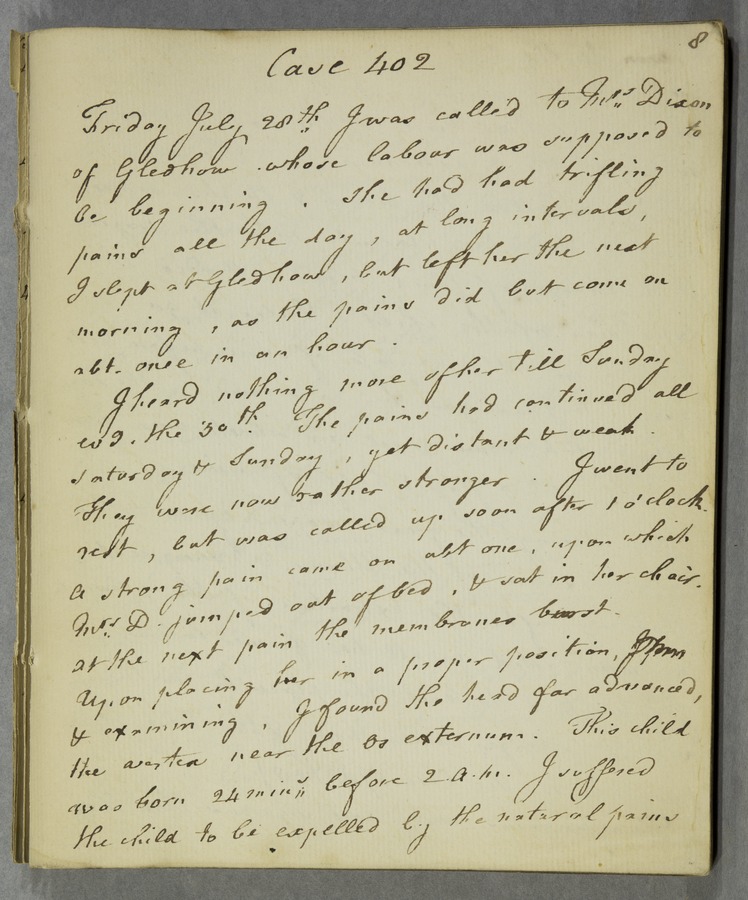 8
Case 402
Friday July 28th I was called to Mrs Dixon
of Gledhow whose labour was supposed to
be beginning . She had had trifling
pains all the day , at long intervals,
I slept at Gledhow , but left her the next
morning , as the pains did but come on
abt. once in an hour .
I heard nothing more of her till Sunday
evg. the 30th. The pains had continued all
Saturday & Sunday , yet distant & weak .
They were now rather stronger . I went to
rest , but was called up soon after 1 o'clock.
A strong pain came on abt one , upon which
Mrs D. jumped out of bed , & sat in her chair.
at the next pain the membranes burst .
Upon placing her in a proper position,
& examining , I found the head far advanced,
the vertex near the Os externum. This child
was born 24 mins before 2 a.m. I suffered
the child to be expelled by the natural pains